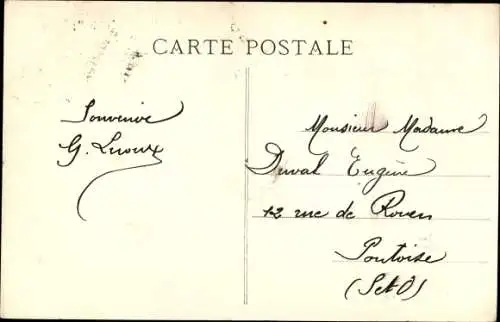 CARTE POSTALE
Souvenir
G. Leroux
Monsieur Madame
Duval Eugène
12 rue de Rouen
Pontoise
(S et O)